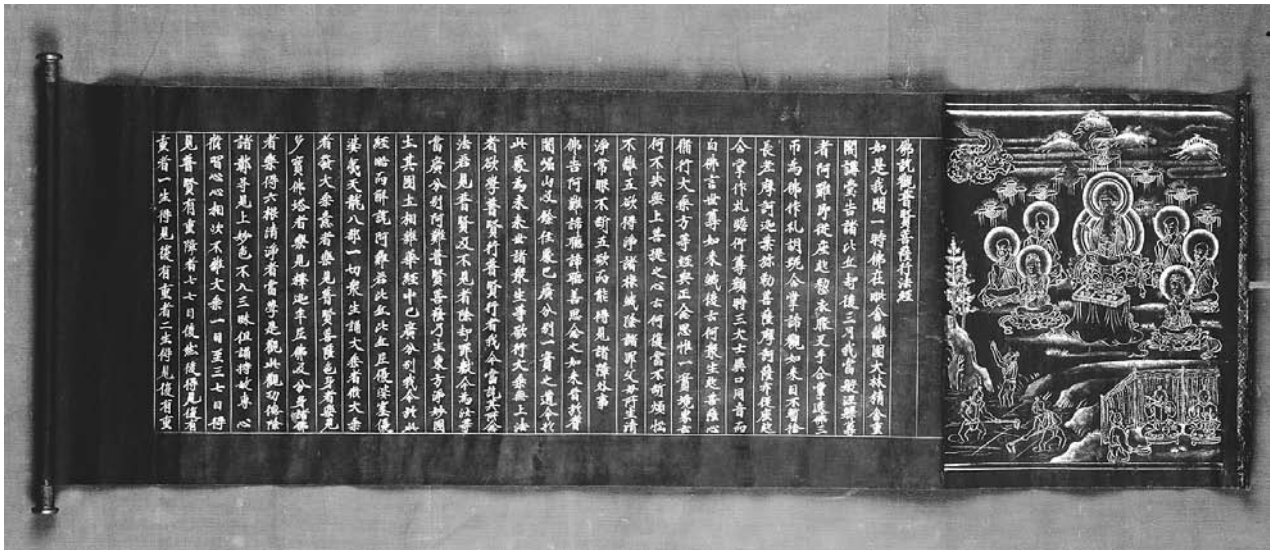 佛説觀普賢菩薩行法經
如是我聞一時佛在毗舍離國大林精舍重
閣講堂告諸比丘却後三月我當般涅槃尊
者阿難即從座起整衣服叉手合掌遶佛三
帀為佛作礼胡跪合掌諦觀如来目不暫捨
長老摩訶迦葉弥勒菩薩摩訶薩亦從座起
合掌作礼瞻仰尊顔時三大士異口同音而
白佛言世尊如来滅後云何衆生起菩薩心
脩行大乗方等經典正念思惟一實境界云
何不失無上菩提之心云何復當不斷煩惱
不離五欲得淨諸根滅除諸罪父母所生清
淨常眼不斷五欲而能得見諸障外事
佛告阿難諦聽諦聽善思念之如来昔於耆
闍崛山及餘住處已廣分別一實之道今於
此處為未来世諸衆生等欲行大乗無上法
者欲學普賢行普賢行者我今當説其念
法若見普賢及不見者除却罪數今為汝等
當廣分別阿難普賢菩薩乃生東方淨妙國
土其國土相雜華經中已廣分別我今於此
經略而解説阿難若比丘比丘尼優婆塞優
婆夷天龍八部一切衆生誦大乗者脩大乗
者發大乗意者樂見普賢菩薩色身者樂見
多寶佛塔者樂見釋迦牟尼佛及分身諸佛
者樂得六根清淨者當學是觀此觀功德除
諸鄣㝵見上妙色不入三昧但誦持故專心
脩習心心相次不離大乗一日至三七日得
見普賢有重障者七七日後然後得見復有
重者一生得見復有重者二生得見復有重